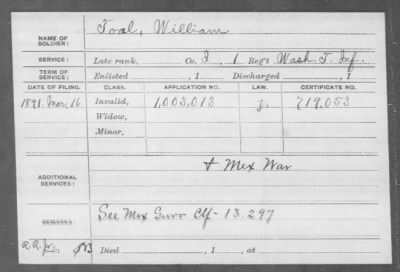 NAME OF SOLDIER: Toal, William
SERVICE: Late rank, Co. I, 1 Reg't Wash. T. Inf.
TERM OF SERVICE: Enlisted , 1 Discharged , 1
DATE OF FILING. CLASS. APPLICATION NO. LAW. CERTIFICATE NO.
1891. Mar. 16 Invalid, 1,003,013 J. 719,053
Widow,
Minor,
ADDITIONAL SERVICES: + Mex War
REMARKS: See Mex Surv Clf - 13.297
Died , 1 , at